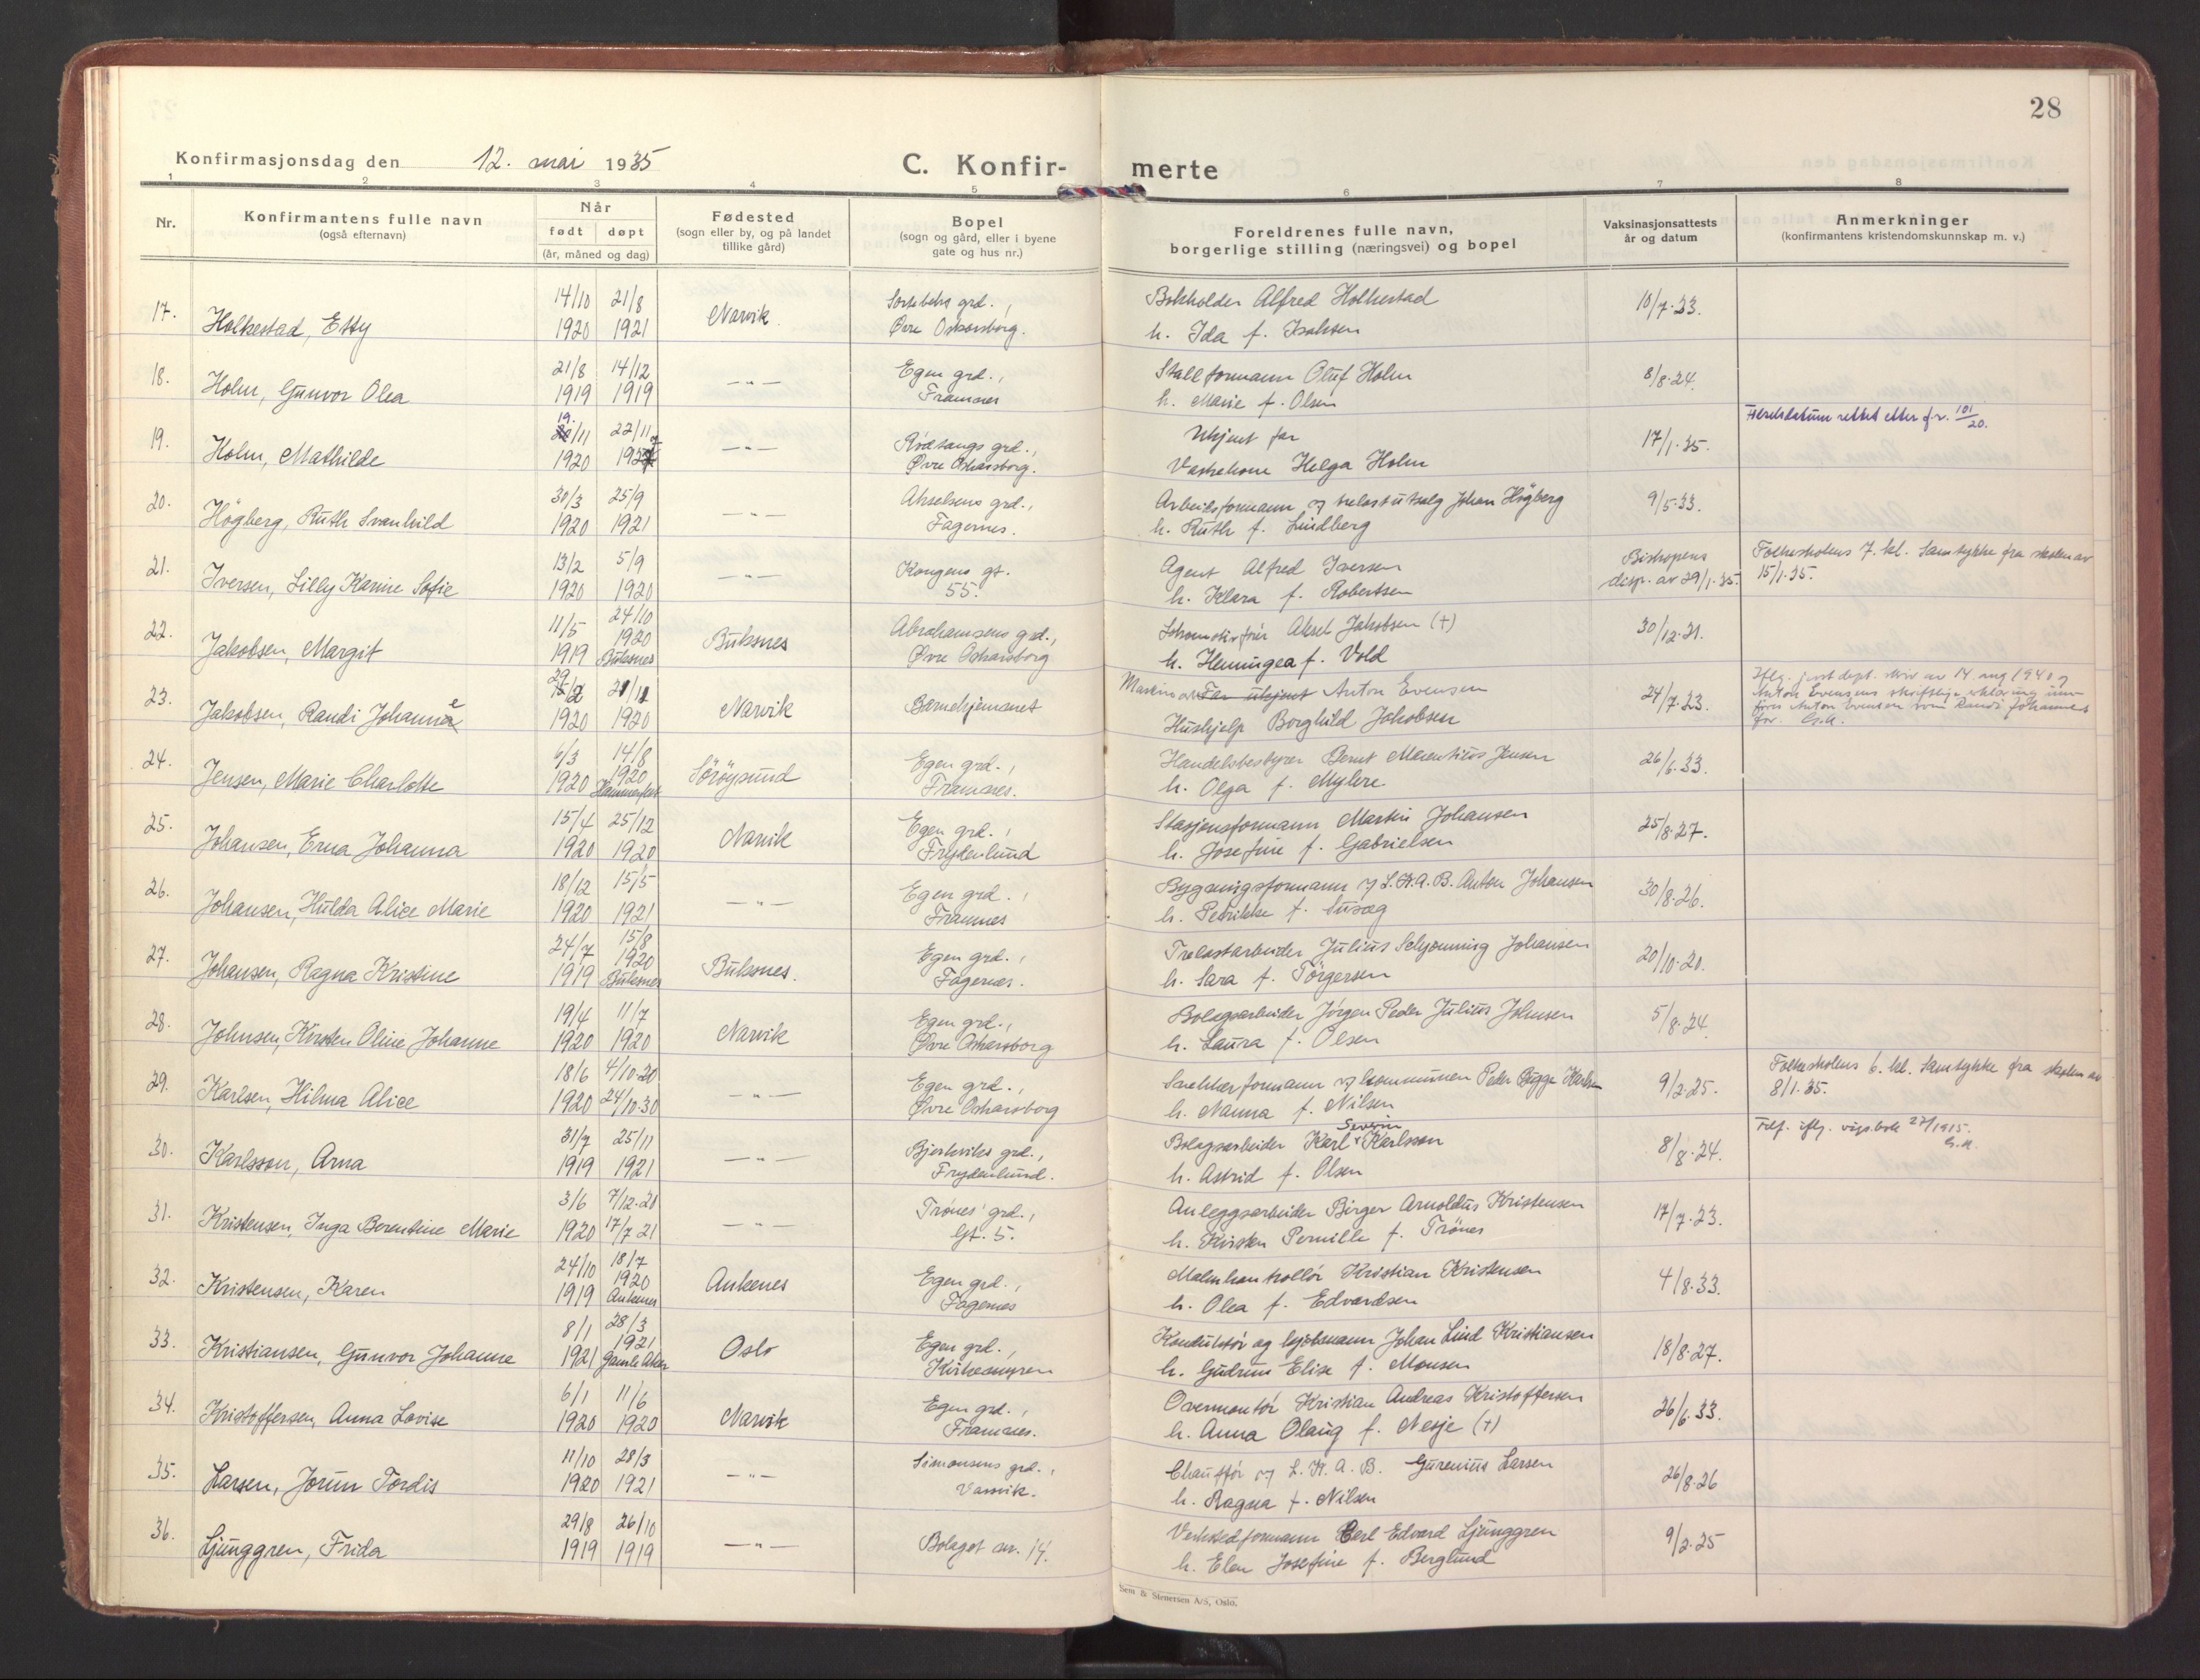 28
Konfirmasjonsdag den 12. mai 1935
C. Konfir- merte
1 2 3 4 5 6 7 8
Nr.
Konfirmantens fulle navn
(også efternavn)
Når
født døpt
(år, måned og dag)
Fødested
(sogn eller by, og på landet
tillike gård)
Bopel
(sogn og gård, eller i byene
gate og hus nr.)
Foreldrenes fulle navn,
borgerlige stilling (næringsvei) og bopel
Vaksinasjonsattests
år og datum
Anmerkninger
(konfirmantens kristendomskunnskap m. v.)
14/10 21/8 grd., Bokholder Alfred Holkestad 10/7.33.
17. Holkestad, Etty 1920 1921 Narvik Øvre Oskarsborg. h. Ida f. Isaksen
21/8 14/12 Egen grd., Stallformann Oluf Holm 8/8.24.
18. Holm, Gunvor Olea 1919 1919 —"— Framnes h. Marie f. Olsen
19/11 22/11 grd., Ukjent far 17/1.35. Fødselsdatum rettet etter f.r. 101/20.
19. Holm, Mathilde 1920 —"— Øvre Oskarsborg. Vaskekone Helga Holm
30/3 25/9 Akselsens grd., Arbeidsformann v/ trelastutsalg Johan Högberg 9/5.33.
20. Högberg, Ruth Svanhild 1920 1921 —"— Fagernes. h. Ruth f. Lindberg
13/2 5/9 Kongens gt. Agent Alfred Iversen Bishopens Folkeskolens 7. kl. Samtykke fra skolen av
21. Iversen, Lilly Karine Sofie 1920 1920 —"— 55. h. Klara f. Robertsen disp. av 29/1.35. 15/1.35.
11/5 24/10 1920 Abrahamsens grd., Lokomotivfører Aksel Jakobsen (+) 30/12.21.
22. Jakobsen, Margit 1919 Buksnes Buksnes Øvre Oskarsborg h. Henningea f. Vold
29/2 21/11 Far ukjent Anton Evensen 24/7.23. Iflg. just.dept. skriv av 14. aug 1940 og
Anton Evensens skriftlige erklæring inn-
føres Anton Evensen som Randi Johannes
far. G.A.
23. Jakobsen, Randi Johanne 1920 1920 Narvik Barnehjemmet Hushjelp Borghild Jakobsen
6/3 14/8 1920 Egen grd., Handelsbestyrer Bernt Marentius Jensen 26/6.33.
24. Jensen, Marie Charlotte 1920 Hammerfest Sörøysund Framnes. h. Olga f. Myhre
15/4 25/12 Egen grd., Stasjonsformann Martin Johansen 25/8.27.
25. Johansen, Erna Johanna 1920 1920 Narvik Frydenlund h. Josefine f. Gabrielsen
18/12 15/5 Egen grd., Bygningsformann v/ L.K.A.B. Anton Johansen 30/8.26.
26. Johansen, Hulda Alice Marie 1920 1921 —"— Framnes h. Petrikke f.
24/7 15/8 1920 Egen grd., Trelastarbeider Julius Schjønning Johansen 20/10.20.
27. Johansen, Ragna Kristine 1919 Buksnes Buksnes. Fagernes. h. Sara f. Törgersen
19/4 11/7 Egen grd., Bolagsarbeider Jørgen Peder Julius Johnsen 5/8.24
28. Johnsen, Kirsten Oline Johanne 1920 1920 Narvik Øvre Oskarsborg h. Laura f. Olsen
18/6 4/10.20 Egen grd., formann v/ kommunen Peder Bugge Karlsen 9/2.25. Folkeskolens 6. kl. Samtykke fra skolen av
29. Karlsen, Hilma Alice 1920 24/10.30 —"— Øvre Oskarsborg h. Nanna f. Nilsen 8/1.35.
31/7 25/11 Bjerkviks grd., Bolagsarbeider Karl Severin Karlsson 8/8.24. iflg. vigs.bok 27/1915. G.A.
30. Karlsson, Arna 1919 1921 —"— Frydenlund. h. Astrid f. Olsen
3/6 7/12.20 Trönes' grd., Anleggsarbeider Birger Arnoldus Kristensen 17/7.23.
31. Kristensen, Inga Berentine Marie 1920 17/7 21 —"— Gt. 5. h. Kirsten Pernille f. Trönes
24/10 18/7 1920 Egen grd., Malmkontrollør Kristian Kristensen 4/8.33.
32. Kristensen, Karen 1919 Ankenes Ankenes Fagernes h. Olea f. Edvardsen
8/1 28/3 1921 Egen grd., Konduktør og kjøbmann Johan Lind Kristiansen 18/8.27.
33. Kristiansen, Gunvor Johanne 1921 Gamle Aker Oslo Kirkemyren h. Gudrun Elise f. Monsen
6/1 11/6 Egen grd., Overmontør Kristian Andreas Kristoffersen 26/6.33.
34. Kristoffersen, Anna Lovise 1920 1920 Narvik Framnes. h. Anna Olaug f. Nesje (+)
11/10 28/3 Simonsens grd., Chauffør v/ L.K.A.B. Gurenius Larsen 26/8.26
35. Larsen, Jorun Tordis 1920 1921 —"— Vassvik. h. Ragna f. Nilsen
29/8 26/10 Bolaget nr. 14. Verkstedformann Carl Edvard Ljunggren 9/2.25
36. Ljunggren, Frida 1919 1919 —"— h. Elen Josefine f. Berglund
Sem & Stenersen A/S, Oslo.